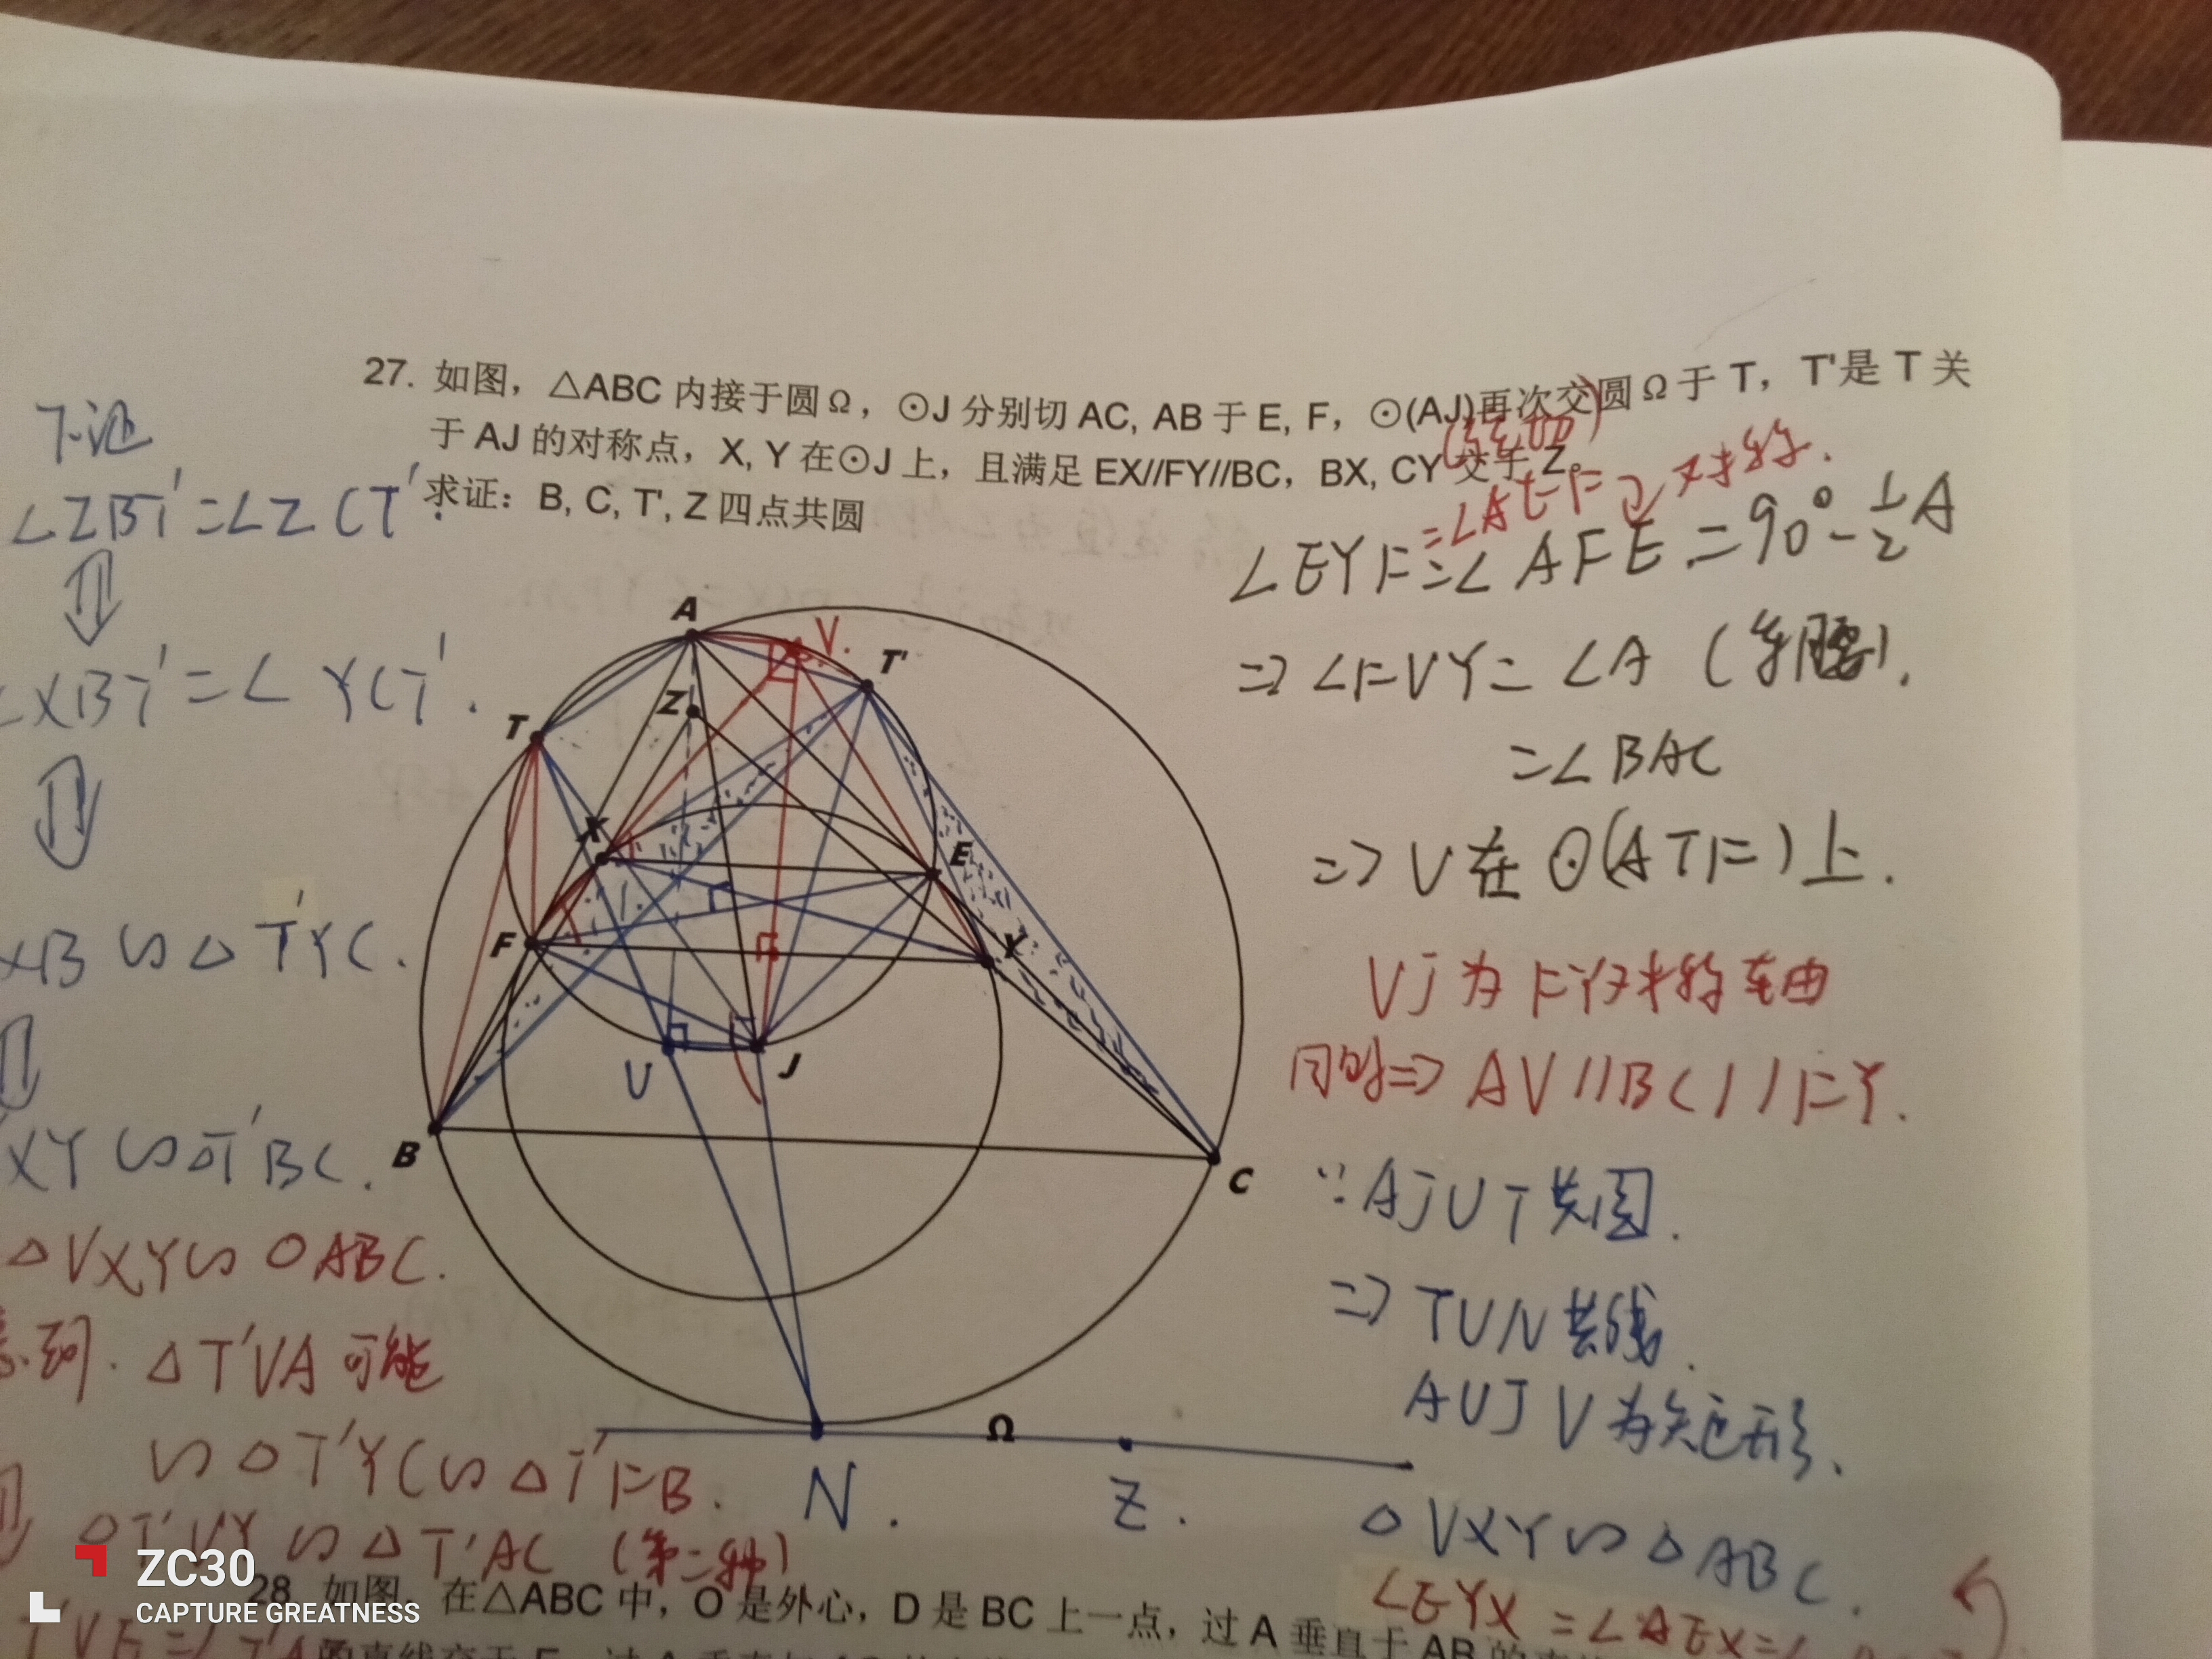 27. 如图，△ABC 内接于圆Ω，⊙J 分别切 AC, AB 于 E, F，⊙(AJ)再次交圆Ω于 T，T'是 T 关
于 AJ 的对称点，X, Y 在⊙J 上，且满足 EX//FY//BC，BX, CY 交于 Z。
求证：B, C, T', Z 四点共圆
下证
∠ZBT'=∠ZCT'.
⇓
∠XBT'=∠YCT'.
⇓
XB∽△T'YC.
XY∽△T'BC.
△VXY∽△ABC.
△T'VA可能
∽△T'YC∽△T'FB.
△T'VY∽△T'AC (第二种)
=∠AEF
∠EYF=∠AFE=90°-½A
⇒∠FVY=∠A (等腰).
=∠BAC
⇒V在⊙(ATF)上.
VJ为FY对称轴
同时⇒AV//BC//FY.
∵AJUT共圆.
⇒TUN共线.
AUJV为矩形.
△VXY∽△ABC.
∠EYX=∠AEX=∠
A
V.
T'
Z
T
X
E
F
Y
U
J
B
C
Ω
N.
Z.
28. 如图，在△ABC 中，O 是外心，D 是 BC 上一点，过 A 垂直于 AB 的
ZC30
CAPTURE GREATNESS